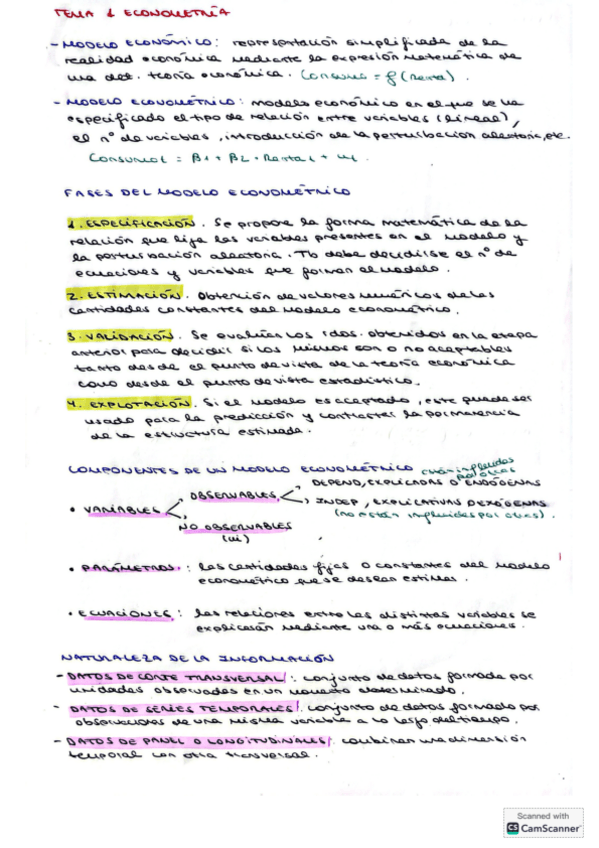 TEMA 1 ECONOMETRÍA
- MODELO ECONÓMICO: representación simplificada de la
realidad económica mediante la expresión matemática de
una det. teoría económica. Consumo = f(renta)
- MODELO ECONOMÉTRICO: modelo económico en el que se ha
especificado el tipo de relación entre variables (lineal),
el nº de variables, introducción de la perturbación aleatoria, etc.
Consumo t = β1 + β2 · Renta t + ut.
FASES DEL MODELO ECONOMÉTRICO
1. ESPECIFICACIÓN. Se propone la forma matemática de la
relación que liga las variables presentes en el modelo y
la perturbación aleatoria. Tb debe decidirse el nº de
ecuaciones y variables que forman el modelo.
2. ESTIMACIÓN. Obtención de valores numéricos de las
cantidades constantes del modelo econométrico.
3. VALIDACIÓN. Se evalúan los rdos. obtenidos en la etapa
anterior para decidir si los mismos son o no aceptables
tanto desde el punto de vista de la teoría económica
como desde el punto de vista estadístico.
4. EXPLOTACIÓN. Si el modelo es aceptado, este puede ser
usado para la predicción y contrastar la permanencia
de la estructura estimada.
COMPONENTES DE UN MODELO ECONOMÉTRICO
están influidas por otras
DEPEND, EXPLICADAS O ENDÓGENAS
OBSERVABLES
INDEP, EXPLICATIVAS O EXÓGENAS
• VARIABLES
(no están influidas por otras).
NO OBSERVABLES
(ui)
• PARÁMETROS: las cantidades fijas o constantes del modelo
econométrico que se desean estimar.
• ECUACIONES: las relaciones entre las distintas variables se
explicarán mediante una o más ecuaciones.
NATURALEZA DE LA INFORMACIÓN
- DATOS DE CORTE TRANSVERSAL: conjunto de datos formada por
unidades observadas en un momento determinado.
- DATOS DE SERIES TEMPORALES: conjunto de datos formado por
observaciones de una misma variable a lo largo del tiempo.
- DATOS DE PANEL O LONGITUDINALES: combinan una dimensión
temporal con otra transversal.
Scanned with
CS CamScanner